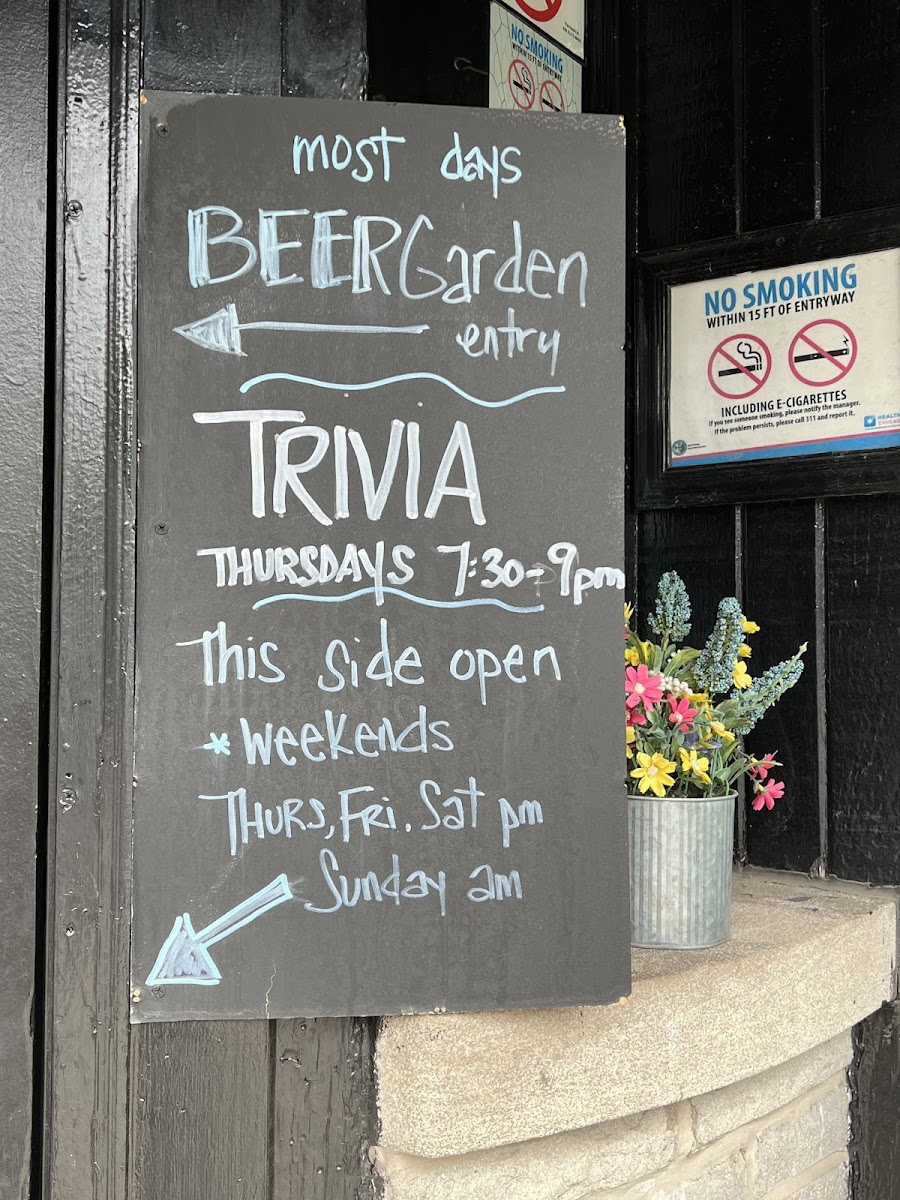 most days
BEER Garden
entry
TRIVIA
THURSDAYS 7:30-9pm
This side open
* Weekends
THURS, FRi. Sat pm
Sunday am
NO SMOKING
WITHIN 15 FT OF ENTRYWAY
NO SMOKING
WITHIN 15 FT OF ENTRYWAY
INCLUDING E-CIGARETTES
If you see someone smoking, please notify the manager.
If the problem persists, please call 311 and report it.